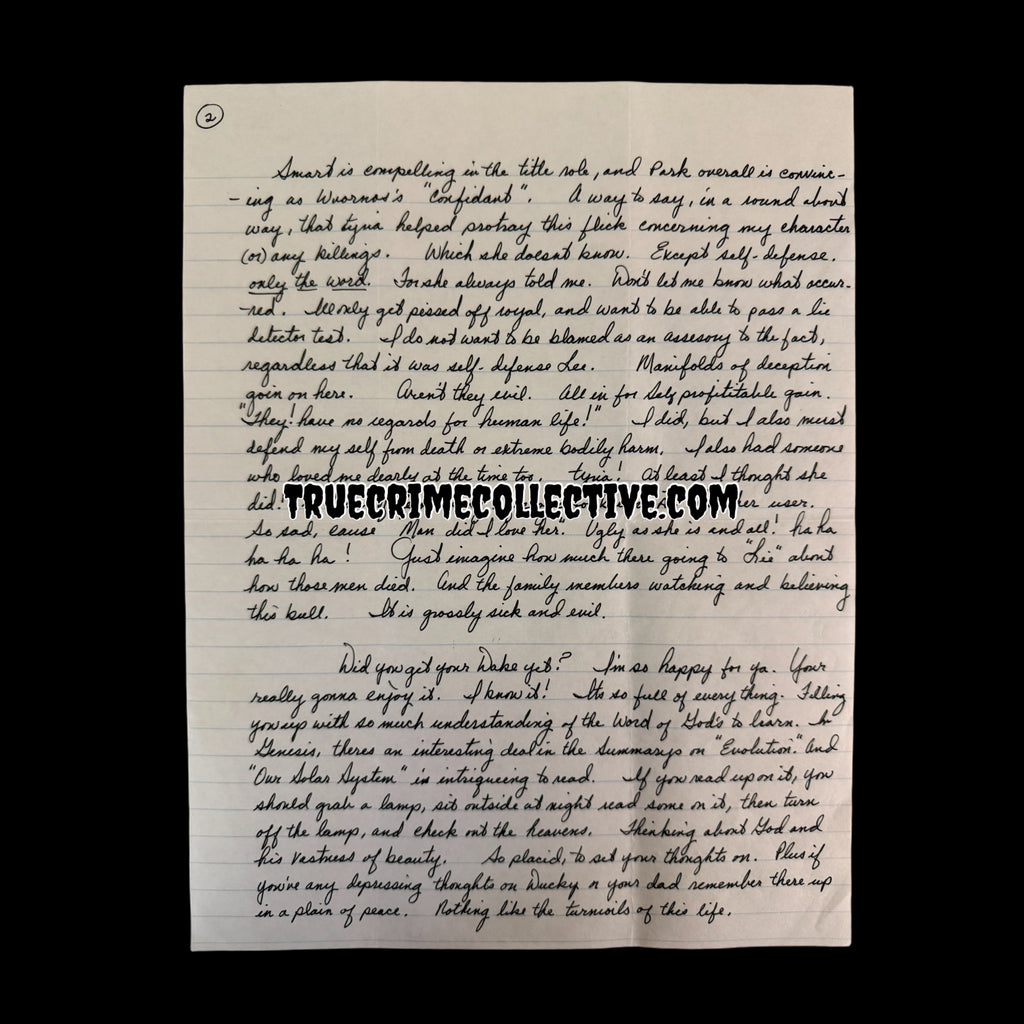 2
Smart is compelling in the title role, and Park overall is convinc-
-ing as Wuornos's "confidant". A way to say, in a round about
way, that tyria helped protray this flick concerning my character
(or) any killings. Which she doesnt know. Except self-defense.
only the word. For she always told me. Don't let me know what occur-
-red. I'll only get pissed off royal, and want to be able to pass a lie
detector test. I do not want to be blamed as an assesory to the fact,
regardless that it was self-defense Lee. Manifolds of deception
goin on here. Aren't they evil. All in for profititable gain.
"They! have no regards for human life!" I did, but I also must
defend my self from death or extreme bodily harm. I also had someone
who loved me dearly at the time too. tyria! At least I thought she
did! user.
TRUECRIMECOLLECTIVE.COM
So sad, cause "Man did I love her". Ugly as she is and all! ha ha
ha ha ha! Just imagine how much there going to "Lie" about
how those men died. And the family members watching and believing
this bull. It is grossly sick and evil.
Did you git your Dake yet? I'm so happy for ya. Your
really gonna enjoy it. I know it! Its so full of every thing. Filling
you up with so much understanding of the Word of God's to learn. In
Genesis, theres an interesting deal in the Summarys on "Evolution." And
"Our Solar System" is intrigueing to read. If you read up on it, you
should grab a lamp, sit outside at night read some on it, then turn
off the lamp, and check out the heavens. Thinking about God and
his vastness of beauty. So placid, to set your thoughts on. Plus if
you've any depressing thoughts on Ducky or your dad remember there up
in a plain of peace. Nothing like the turmoils of this life.